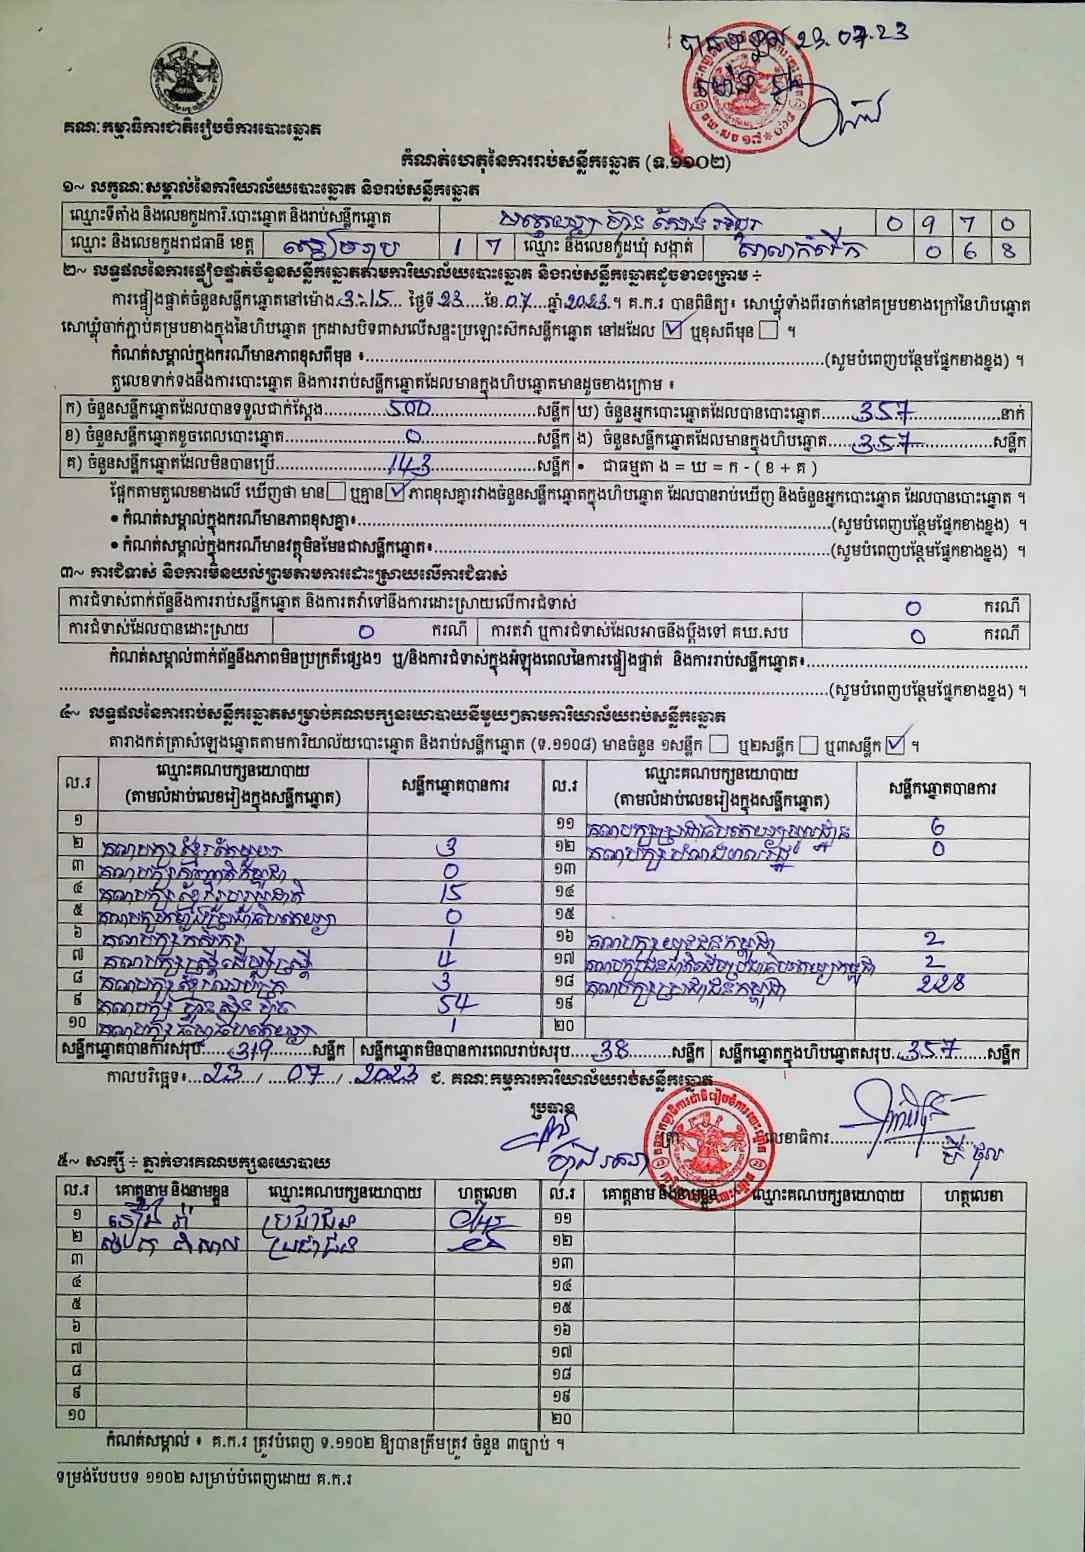 បានទទួល 23.07.23
ម៉ោង
គណៈកម្មាធិការជាតិរៀបចំការបោះឆ្នោត
កំណត់ហេតុនៃការរាប់សន្លឹកឆ្នោត (ទ.១១០២)
១~ លក្ខណៈសម្គាល់នៃការិយាល័យបោះឆ្នោត និងរាប់សន្លឹកឆ្នោត
ឈ្មោះទីតាំង និងលេខកូដការិ.បោះឆ្នោត និងរាប់សន្លឹកឆ្នោត 0 9 7 0
ឈ្មោះ និងលេខកូដរាជធានី ខេត្ត សៀមរាប 1 7 ឈ្មោះ និងលេខកូដឃុំ សង្កាត់ សាលាកំរើក 0 6 8
២~ លទ្ធផលនៃការផ្ទៀងផ្ទាត់ចំនួនសន្លឹកឆ្នោតតាមការិយាល័យបោះឆ្នោត និងរាប់សន្លឹកឆ្នោតដូចខាងក្រោម ÷
ការផ្ទៀងផ្ទាត់ចំនួនសន្លឹកឆ្នោតនៅម៉ោង 3:15 ថ្ងៃទី 23 ខែ 07 ឆ្នាំ 2023 ។ គ.ក.រ បានពិនិត្យ៖ សោឃ្លុំទាំងពីរចាក់នៅគម្របខាងក្រៅនៃហិបឆ្នោត
សោឃ្លុំចាក់ភ្ជាប់គម្របខាងក្នុងនៃហិបឆ្នោត ក្រដាសបិទពាសលើសន្ទះប្រឡោះស៊កសន្លឹកឆ្នោត នៅដដែល ☑ ឬខុសពីមុន ☐ ។
កំណត់សម្គាល់ក្នុងករណីមានភាពខុសពីមុន ៖ (សូមបំពេញបន្ថែមផ្នែកខាងខ្នង) ។
តួលេខទាក់ទងនឹងការបោះឆ្នោត និងការរាប់សន្លឹកឆ្នោតដែលមានក្នុងហិបឆ្នោតមានដូចខាងក្រោម ៖
ក) ចំនួនសន្លឹកឆ្នោតដែលបានទទួលជាក់ស្តែង 500 សន្លឹក ឃ) ចំនួនអ្នកបោះឆ្នោតដែលបានបោះឆ្នោត 357 នាក់
ខ) ចំនួនសន្លឹកឆ្នោតខូចពេលបោះឆ្នោត 0 សន្លឹក ង) ចំនួនសន្លឹកឆ្នោតដែលមានក្នុងហិបឆ្នោត 357 សន្លឹក
គ) ចំនួនសន្លឹកឆ្នោតដែលមិនបានប្រើ 143 សន្លឹក • ជាធម្មតា ង = ឃ = ក - ( ខ + គ )
ផ្អែកតាមតួលេខខាងលើ ឃើញថា មាន ☐ ឬគ្មាន ☑ ភាពខុសគ្នារវាងចំនួនសន្លឹកឆ្នោតក្នុងហិបឆ្នោត ដែលបានរាប់ឃើញ និងចំនួនអ្នកបោះឆ្នោត ដែលបានបោះឆ្នោត ។
• កំណត់សម្គាល់ក្នុងករណីមានភាពខុសគ្នា៖ (សូមបំពេញបន្ថែមផ្នែកខាងខ្នង) ។
• កំណត់សម្គាល់ក្នុងករណីមានវត្ថុមិនមែនជាសន្លឹកឆ្នោត៖ (សូមបំពេញបន្ថែមផ្នែកខាងខ្នង) ។
៣~ ការជំទាស់ និងការមិនយល់ព្រមតាមការដោះស្រាយលើការជំទាស់
ការជំទាស់ពាក់ព័ន្ធនឹងការរាប់សន្លឹកឆ្នោត និងការតវ៉ាទៅនឹងការដោះស្រាយលើការជំទាស់ 0 ករណី
ការជំទាស់ដែលបានដោះស្រាយ 0 ករណី ការតវ៉ា ឬការជំទាស់ដែលអាចនឹងប្តឹងទៅ គឃ.សប 0 ករណី
កំណត់សម្គាល់ពាក់ព័ន្ធនឹងភាពមិនប្រក្រតីផ្សេងៗ ឬ/និងការជំទាស់ក្នុងអំឡុងពេលនៃការផ្ទៀងផ្ទាត់ និងការរាប់សន្លឹកឆ្នោត៖
(សូមបំពេញបន្ថែមផ្នែកខាងខ្នង) ។
៤~ លទ្ធផលនៃការរាប់សន្លឹកឆ្នោតសម្រាប់គណបក្សនយោបាយនីមួយៗតាមការិយាល័យរាប់សន្លឹកឆ្នោត
តារាងកត់ត្រាសំឡេងឆ្នោតតាមការិយាល័យបោះឆ្នោត និងរាប់សន្លឹកឆ្នោត (ទ.១១០៨) មានចំនួន ១សន្លឹក ☐ ឬ២សន្លឹក ☐ ឬ៣សន្លឹក ☑ ។
ល.រ ឈ្មោះគណបក្សនយោបាយ (តាមលំដាប់លេខរៀងក្នុងសន្លឹកឆ្នោត) សន្លឹកឆ្នោតបានការ ល.រ ឈ្មោះគណបក្សនយោបាយ (តាមលំដាប់លេខរៀងក្នុងសន្លឹកឆ្នោត) សន្លឹកឆ្នោតបានការ
១ ១១ 6
២ គណបក្សខ្មែរតែមួយ 3 ១២ 0
៣ គណបក្សសញ្ជាតិកម្ពុជា 0 ១៣
៤ គណបក្សខ្មែររួបរួមជាតិ 15 ១៤
៥ 0 ១៥
៦ គណបក្សកសិករ 1 ១៦ គណបក្សយុវជនកម្ពុជា 2
៧ គណបក្សស្ត្រីដើម្បីស្ត្រី 4 ១៧ 2
៨ 3 ១៨ គណបក្សប្រជាជនកម្ពុជា 228
៩ គណបក្សហ្វ៊ុនស៊ិនប៉ិច 54 ១៩
១០ គណបក្សធម្មាធិបតេយ្យ 1 ២០
សន្លឹកឆ្នោតបានការសរុប 319 សន្លឹក សន្លឹកឆ្នោតមិនបានការពេលរាប់សរុប 38 សន្លឹក សន្លឹកឆ្នោតក្នុងហិបឆ្នោតសរុប 357 សន្លឹក
កាលបរិច្ឆេទ៖ 23 / 07 / 2023 ជ. គណៈកម្មការការិយាល័យរាប់សន្លឹកឆ្នោត
ប្រធាន លេខាធិការ
៥~ សាក្សី ÷ ភ្នាក់ងារគណបក្សនយោបាយ
ល.រ គោត្តនាម និងនាមខ្លួន ឈ្មោះគណបក្សនយោបាយ ហត្ថលេខា ល.រ គោត្តនាម និងនាមខ្លួន ឈ្មោះគណបក្សនយោបាយ ហត្ថលេខា
១ ប្រជាជន ១១
២ ប្រជាជន ១២
៣ ១៣
៤ ១៤
៥ ១៥
៦ ១៦
៧ ១៧
៨ ១៨
៩ ១៩
១០ ២០
កំណត់សម្គាល់ ៖ គ.ក.រ ត្រូវបំពេញ ទ.១១០២ ឱ្យបានត្រឹមត្រូវ ចំនួន ៣ច្បាប់ ។
ទម្រង់បែបបទ ១១០២ សម្រាប់បំពេញដោយ គ.ក.រ